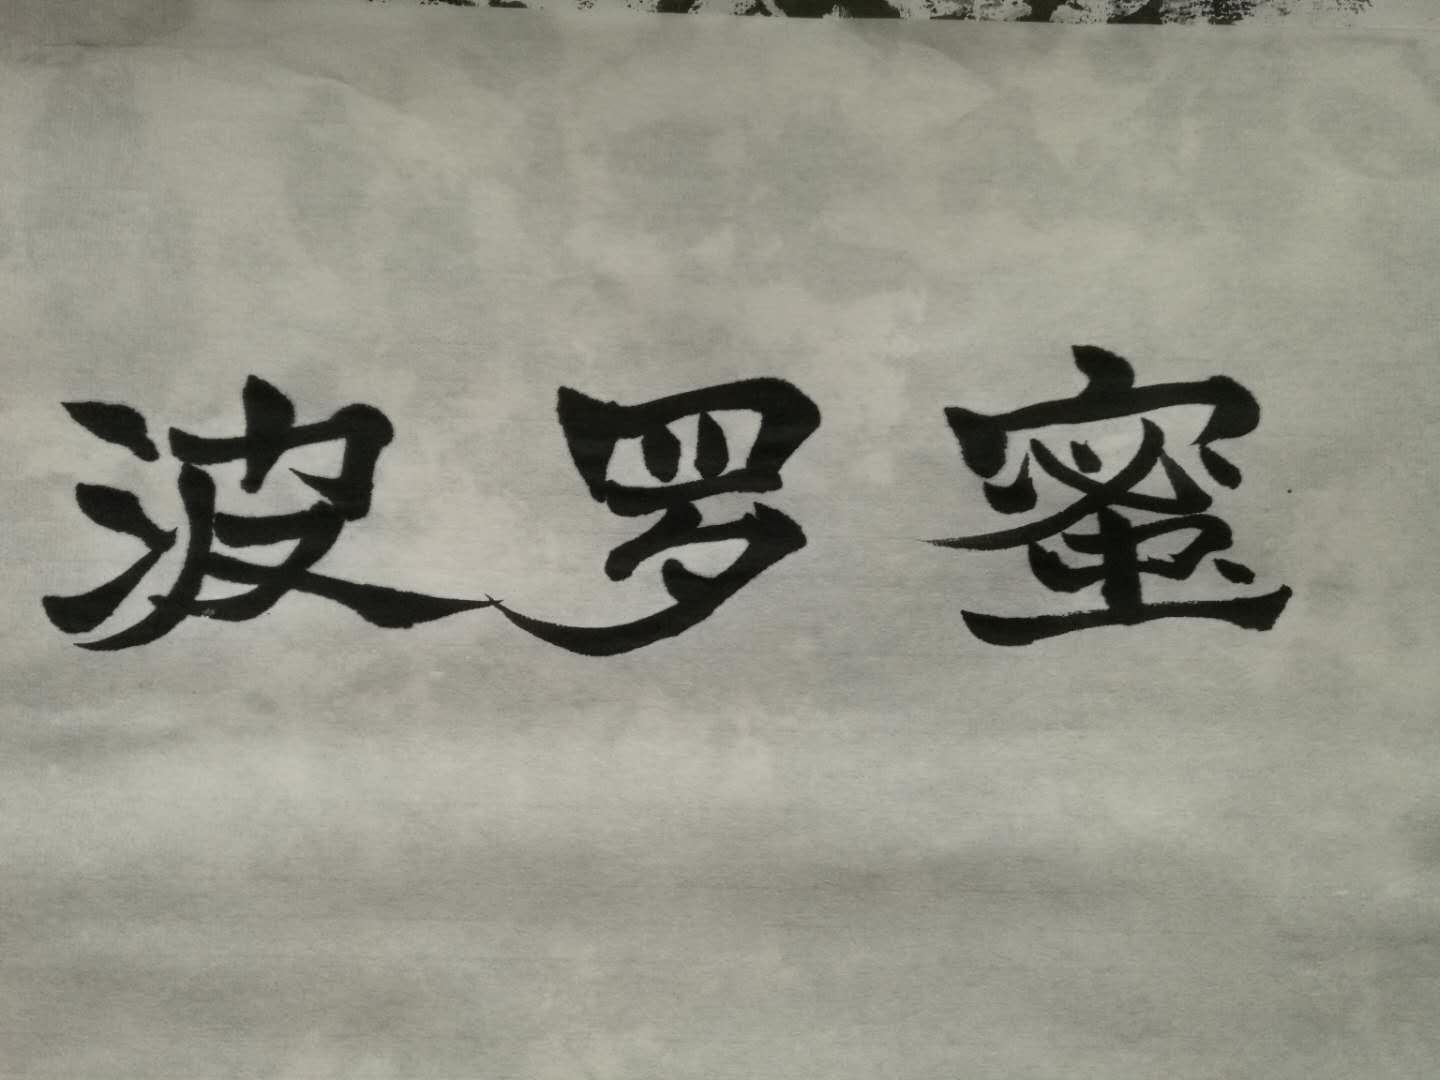 波罗蜜